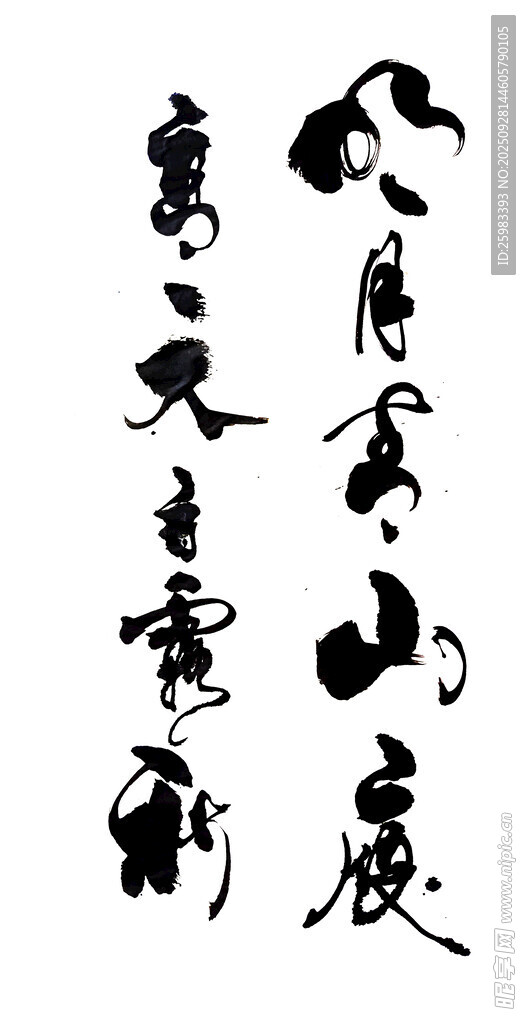 明月青山夜
高天白露秋
ID:25983393 NO:20250928144605790105
昵享网 www.nipic.cn